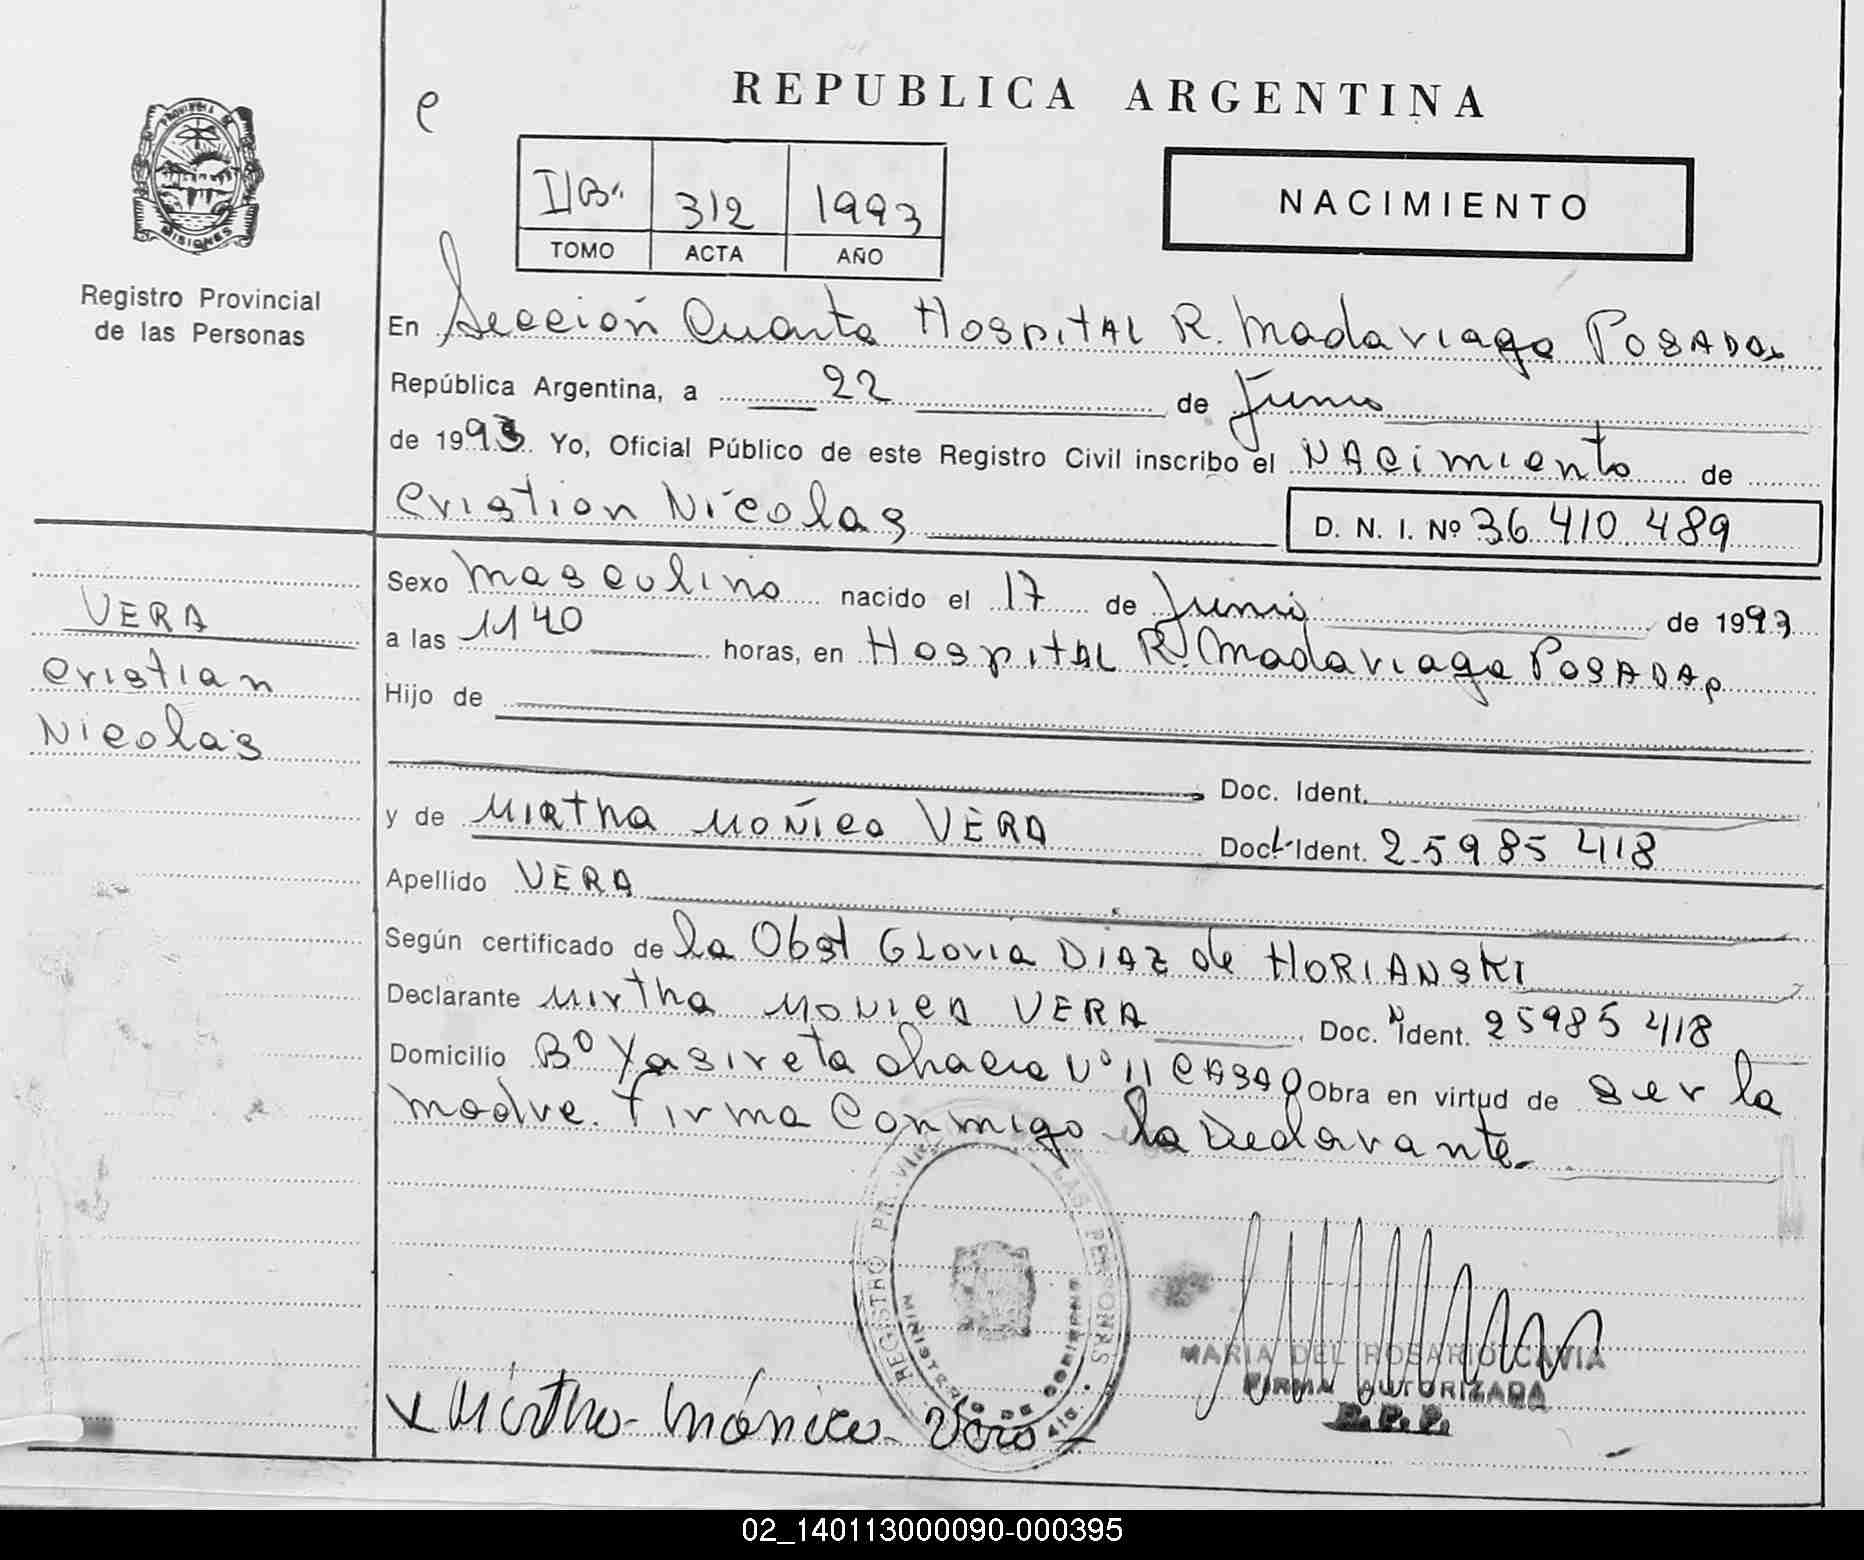 REPUBLICA ARGENTINA
e
PROVINCIA DE
MISIONES
Registro Provincial
de las Personas
II B" 312 1993
TOMO ACTA AÑO
NACIMIENTO
En Sección Cuarta Hospital R. Madariaga Posadas
República Argentina, a 22 de Junio
de 1993. Yo, Oficial Público de este Registro Civil inscribo el Nacimiento de
Cristian Nicolas D. N. I. Nº 36 410 489
VERA
Cristian
Nicolas
Sexo masculino nacido el 17 de Junio de 1993
a las 1140 horas, en Hospital R. Madariaga Posadas
Hijo de
Doc. Ident.
y de Mirtha Monica VERA Doc. Ident. 25985418
Apellido VERA
Según certificado de la Obst Gloria Diaz de HORIANSKI
Declarante Mirtha Monica VERA Doc. Ident. 25985418
Domicilio Bº Yasireta chacra Nº 11 CASA 0 Obra en virtud de ser la
madre. Firma Conmigo la Declarante.
REGISTRO PROVINCIAL DE LAS PERSONAS
MINISTERIO DE GOBIERNO
MARIA DEL ROSARIO CAVIA
FIRMA AUTORIZADA
R.P.P.
x Mirtha Mónica Vera
02_140113000090-000395